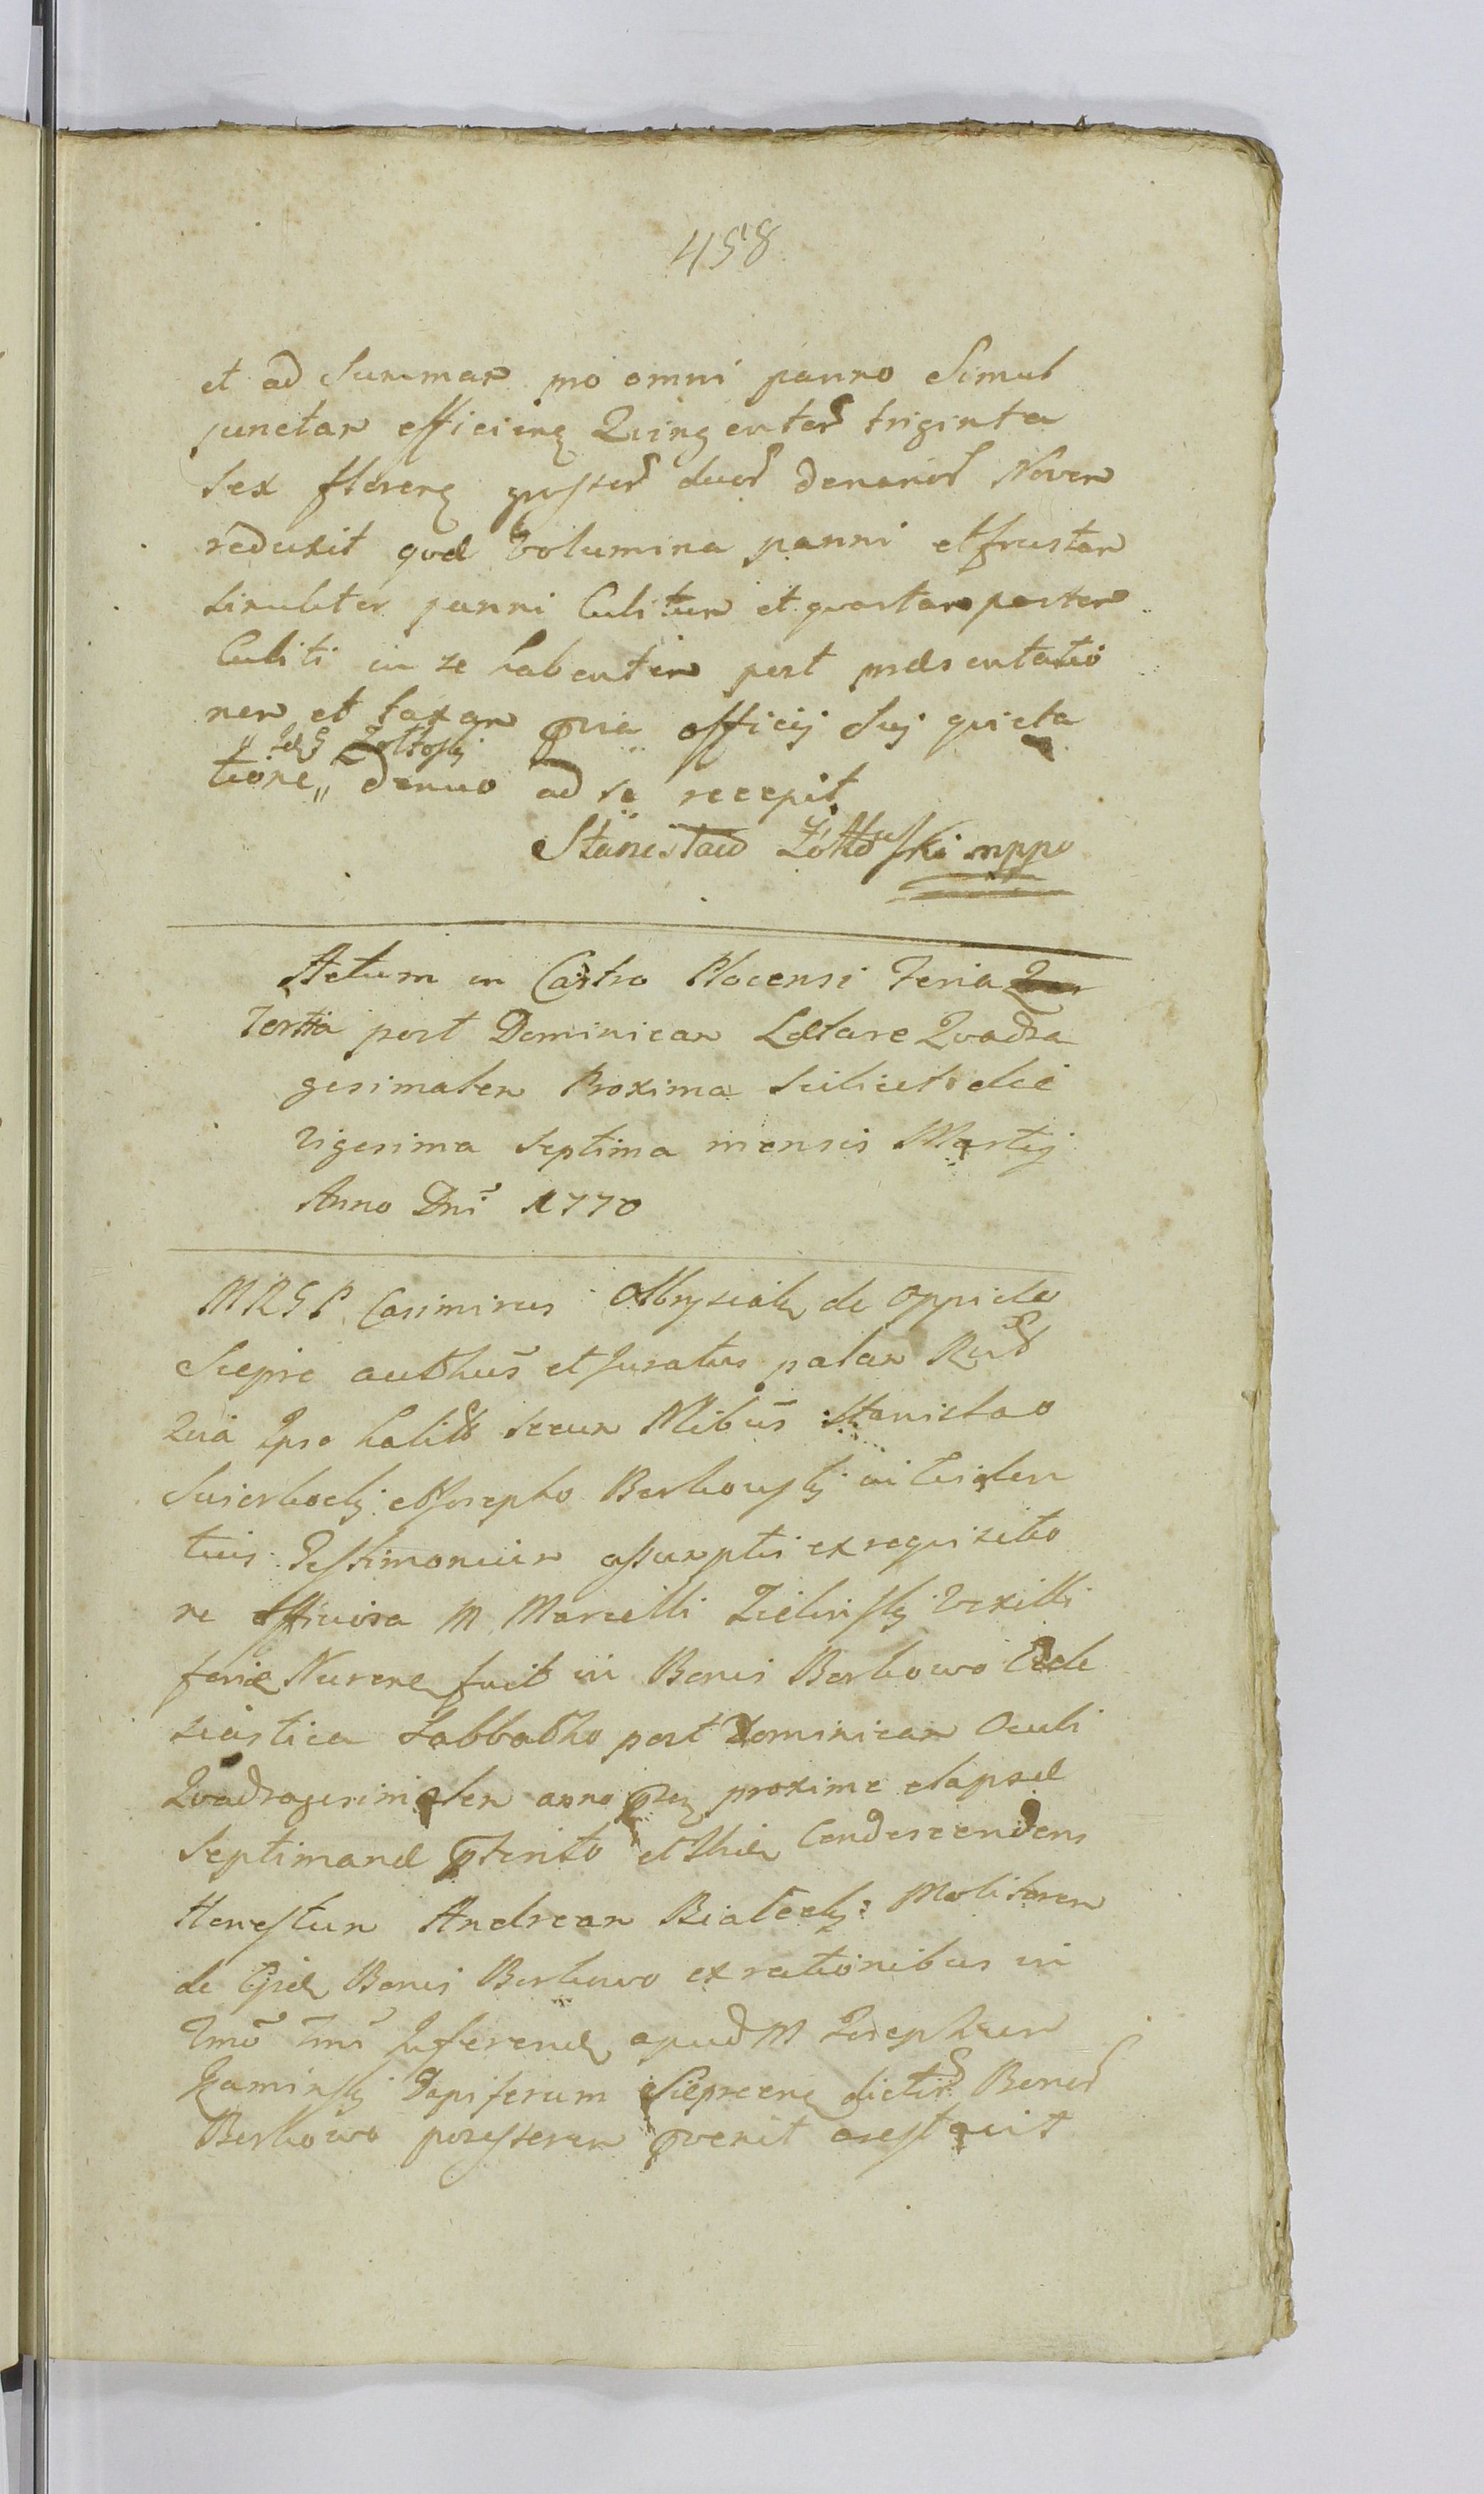 458
et ad Summam pro omni panno Simul
junctam efficieng Quingentos triginta
Sex floreng grossos duos denarios Novem
reduxit quæ Volumina panni et frustum
similiter panni Cubitum et quartam partem
Cubiti in se habentem post præsentatio
nem et taxam officij Sui quieta
tione„ denuo ad se recepit
„ Idem G Zołtoski
Stanisław Zołtowski mppo
Actum in Castro Plocensi Feria
Tertia post Dominicam Lætare Quadra
gesimalem Proxima scilicet die
Vigesima Septima mensis Martij
Anno Dni 1770
MRGP Casimirus de Oppido
Sieprc authus et Juratus palam Rud
Quia Ipse habitis secum Nlibus Stanislao
et Josepho Borkowskj in
tuis Testimonium assumptis ex requisitio
ne officiosa M Marcelli Zielinskj Vexilli
feri Nurens fuit in Bonis Borkowo Eccle
siastica Sabbatho post Dominicam Oculi
Quadragesimalem anno proxime elapsæ
Septimanæ et Ibidem Condescendens
Honestum Andream Białeckj Molitorem
de Bonis Borkowo ex rationibus in
Tmo Tms Inferend apud M Josephum
Kaminskj Dapiferum Sieprceng dictor Bonor
Borkowo possessorem arestavit